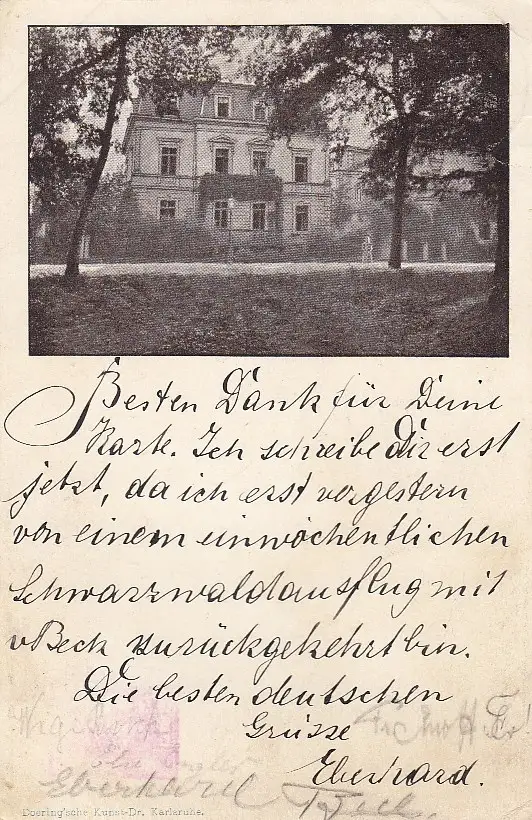 Besten Dank für Deine
Karte. Ich schreibe Dir erst
jetzt, da ich erst vorgestern
von einem einwöchentlichen
Schwarzwaldausflug mit
vBeck zurückgekehrt bin.
Die besten deutschen
Grüsse
Eberhard.
Eberhard
Doering'sche Kunst-Dr. Karlsruhe.